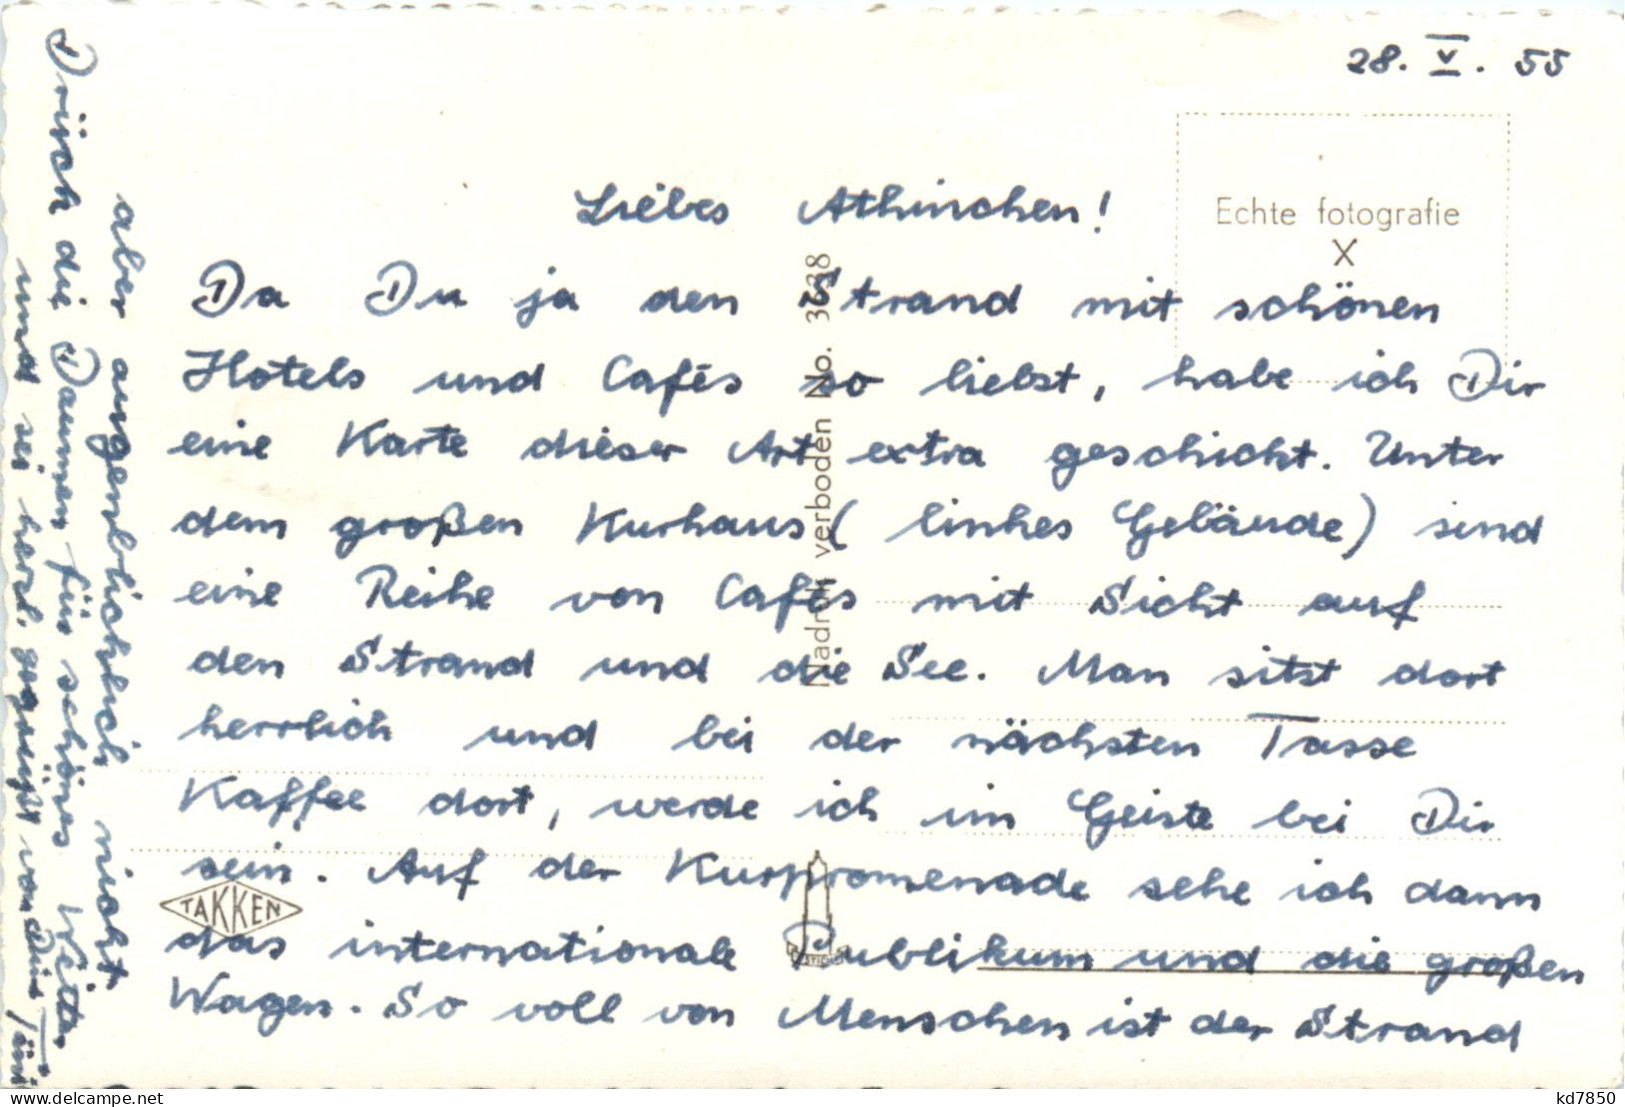 28. V. 55
Echte fotografie
X
Liebes Athinchen!
Da Du ja den Strand mit schönen
Hotels und Cafés so liebst, habe ich Dir
eine Karte dieser Art extra geschickt. Unter
dem großen Kurhaus (linkes Gebäude) sind
eine Reihe von Cafés mit Sicht auf
den Strand und die See. Man sitzt dort
herrlich und bei der nächsten Tasse
Kaffee dort, werde ich im Geiste bei Dir
sein. Auf der Kurpromenade sehe ich dann
das internationale Publikum und die großen
Wagen. So voll von Menschen ist der Strand
aber augenblicklich nicht.
Drück die Daumen für schönes Wetter
und sei herzl. gegrüßt von
Nadruk verboden No.
TAKKEN
kd7850